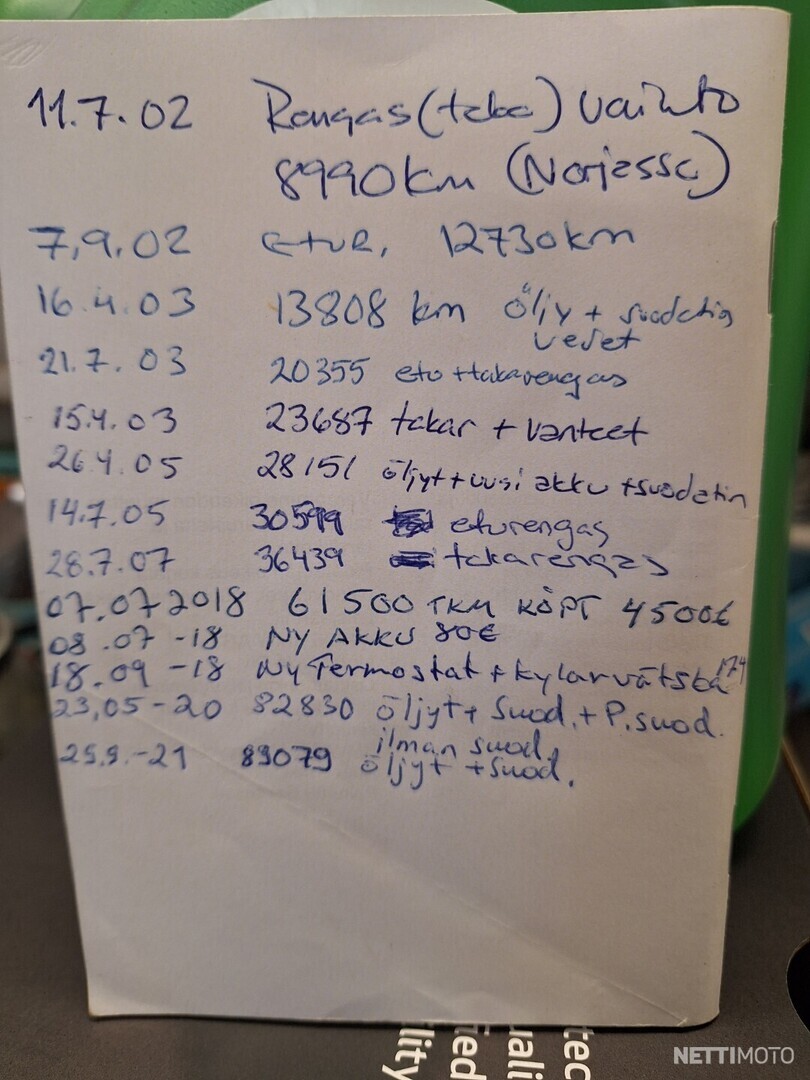 11.7.02 Rengas (taka) vaihto
8990 km (Norjassa)
7.9.02 etur. 12730 km
16.4.03 13808 km öljy + suodatin
vedet
21.7.03 20355 etu + takarengas
15.4.03 23687 takar + vanteet
26.4.05 28151 öljyt + uusi akku + suodatin
14.7.05 30599 eturengas
28.7.07 36439 takarengas
07.07 2018 61500 TKM KÖPT 4500€
08.07 -18 NY AKKU 80€
18.09 -18 NY Termostat + kylarvätska 174
23,05-20 82830 öljyt + Suod. + P.suod.
ilman suod.
25.9.-21 89079 öljyt + suod.
tec
uali
fied
lity
NETTIMOTO